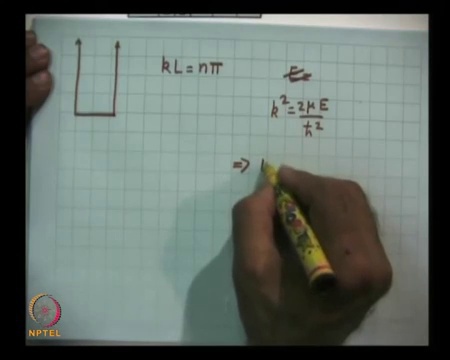 kL = nπ
k² = 2μE / ħ²
⇒
NPTEL